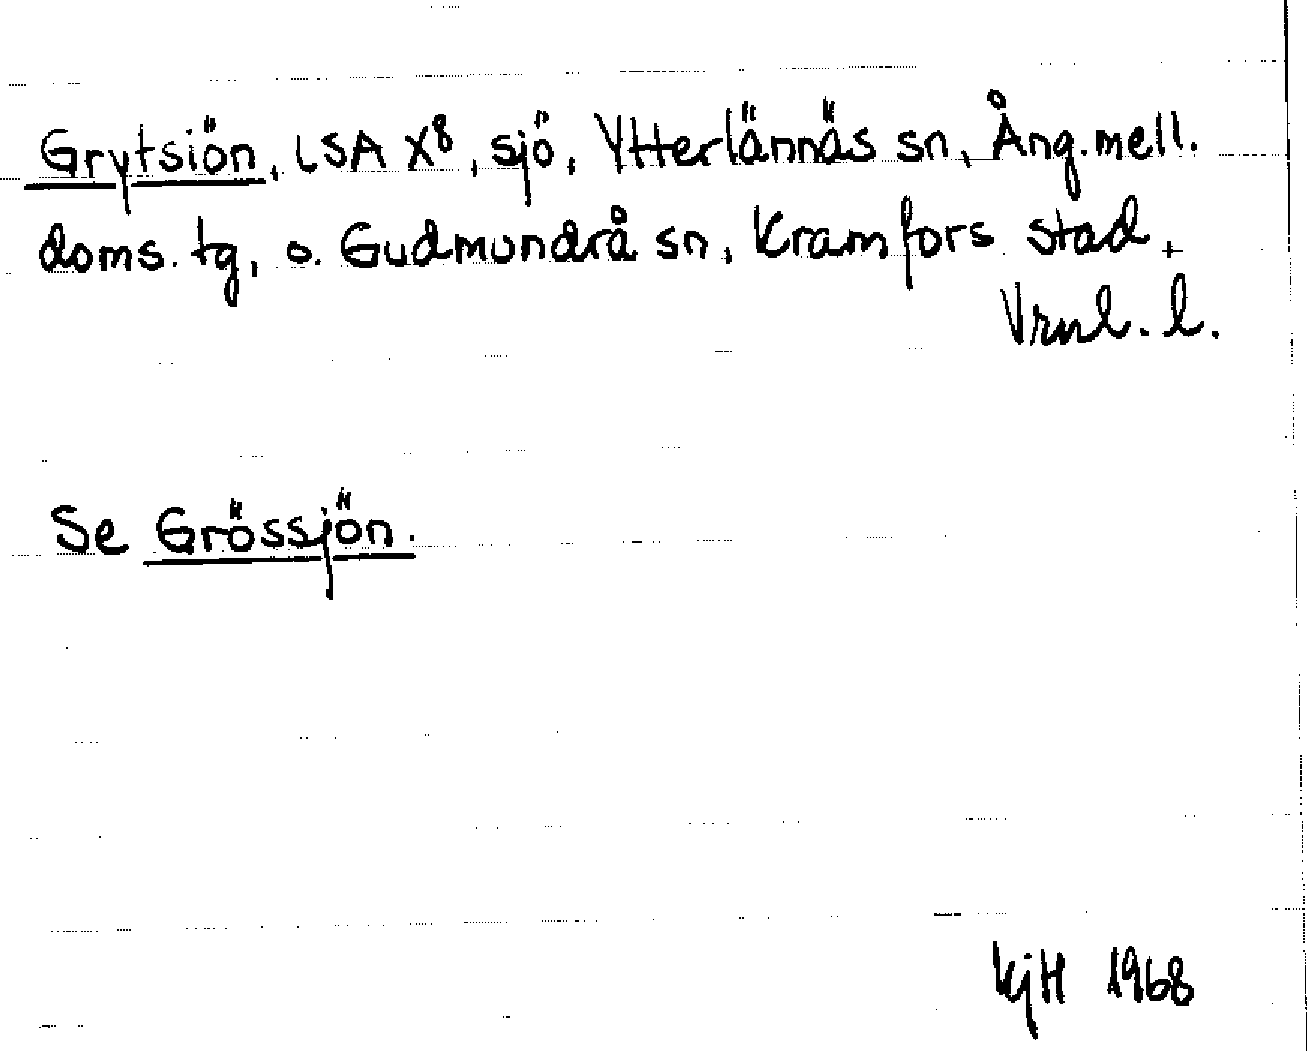 Grytsiön, LSA X8, sjö, Ytterlännäs sn, Ång.mell.
doms. tg, o. Gudmundrå sn, Kramfors stad,
Vrnl. l.
Se Grössjön.
KjH 1968